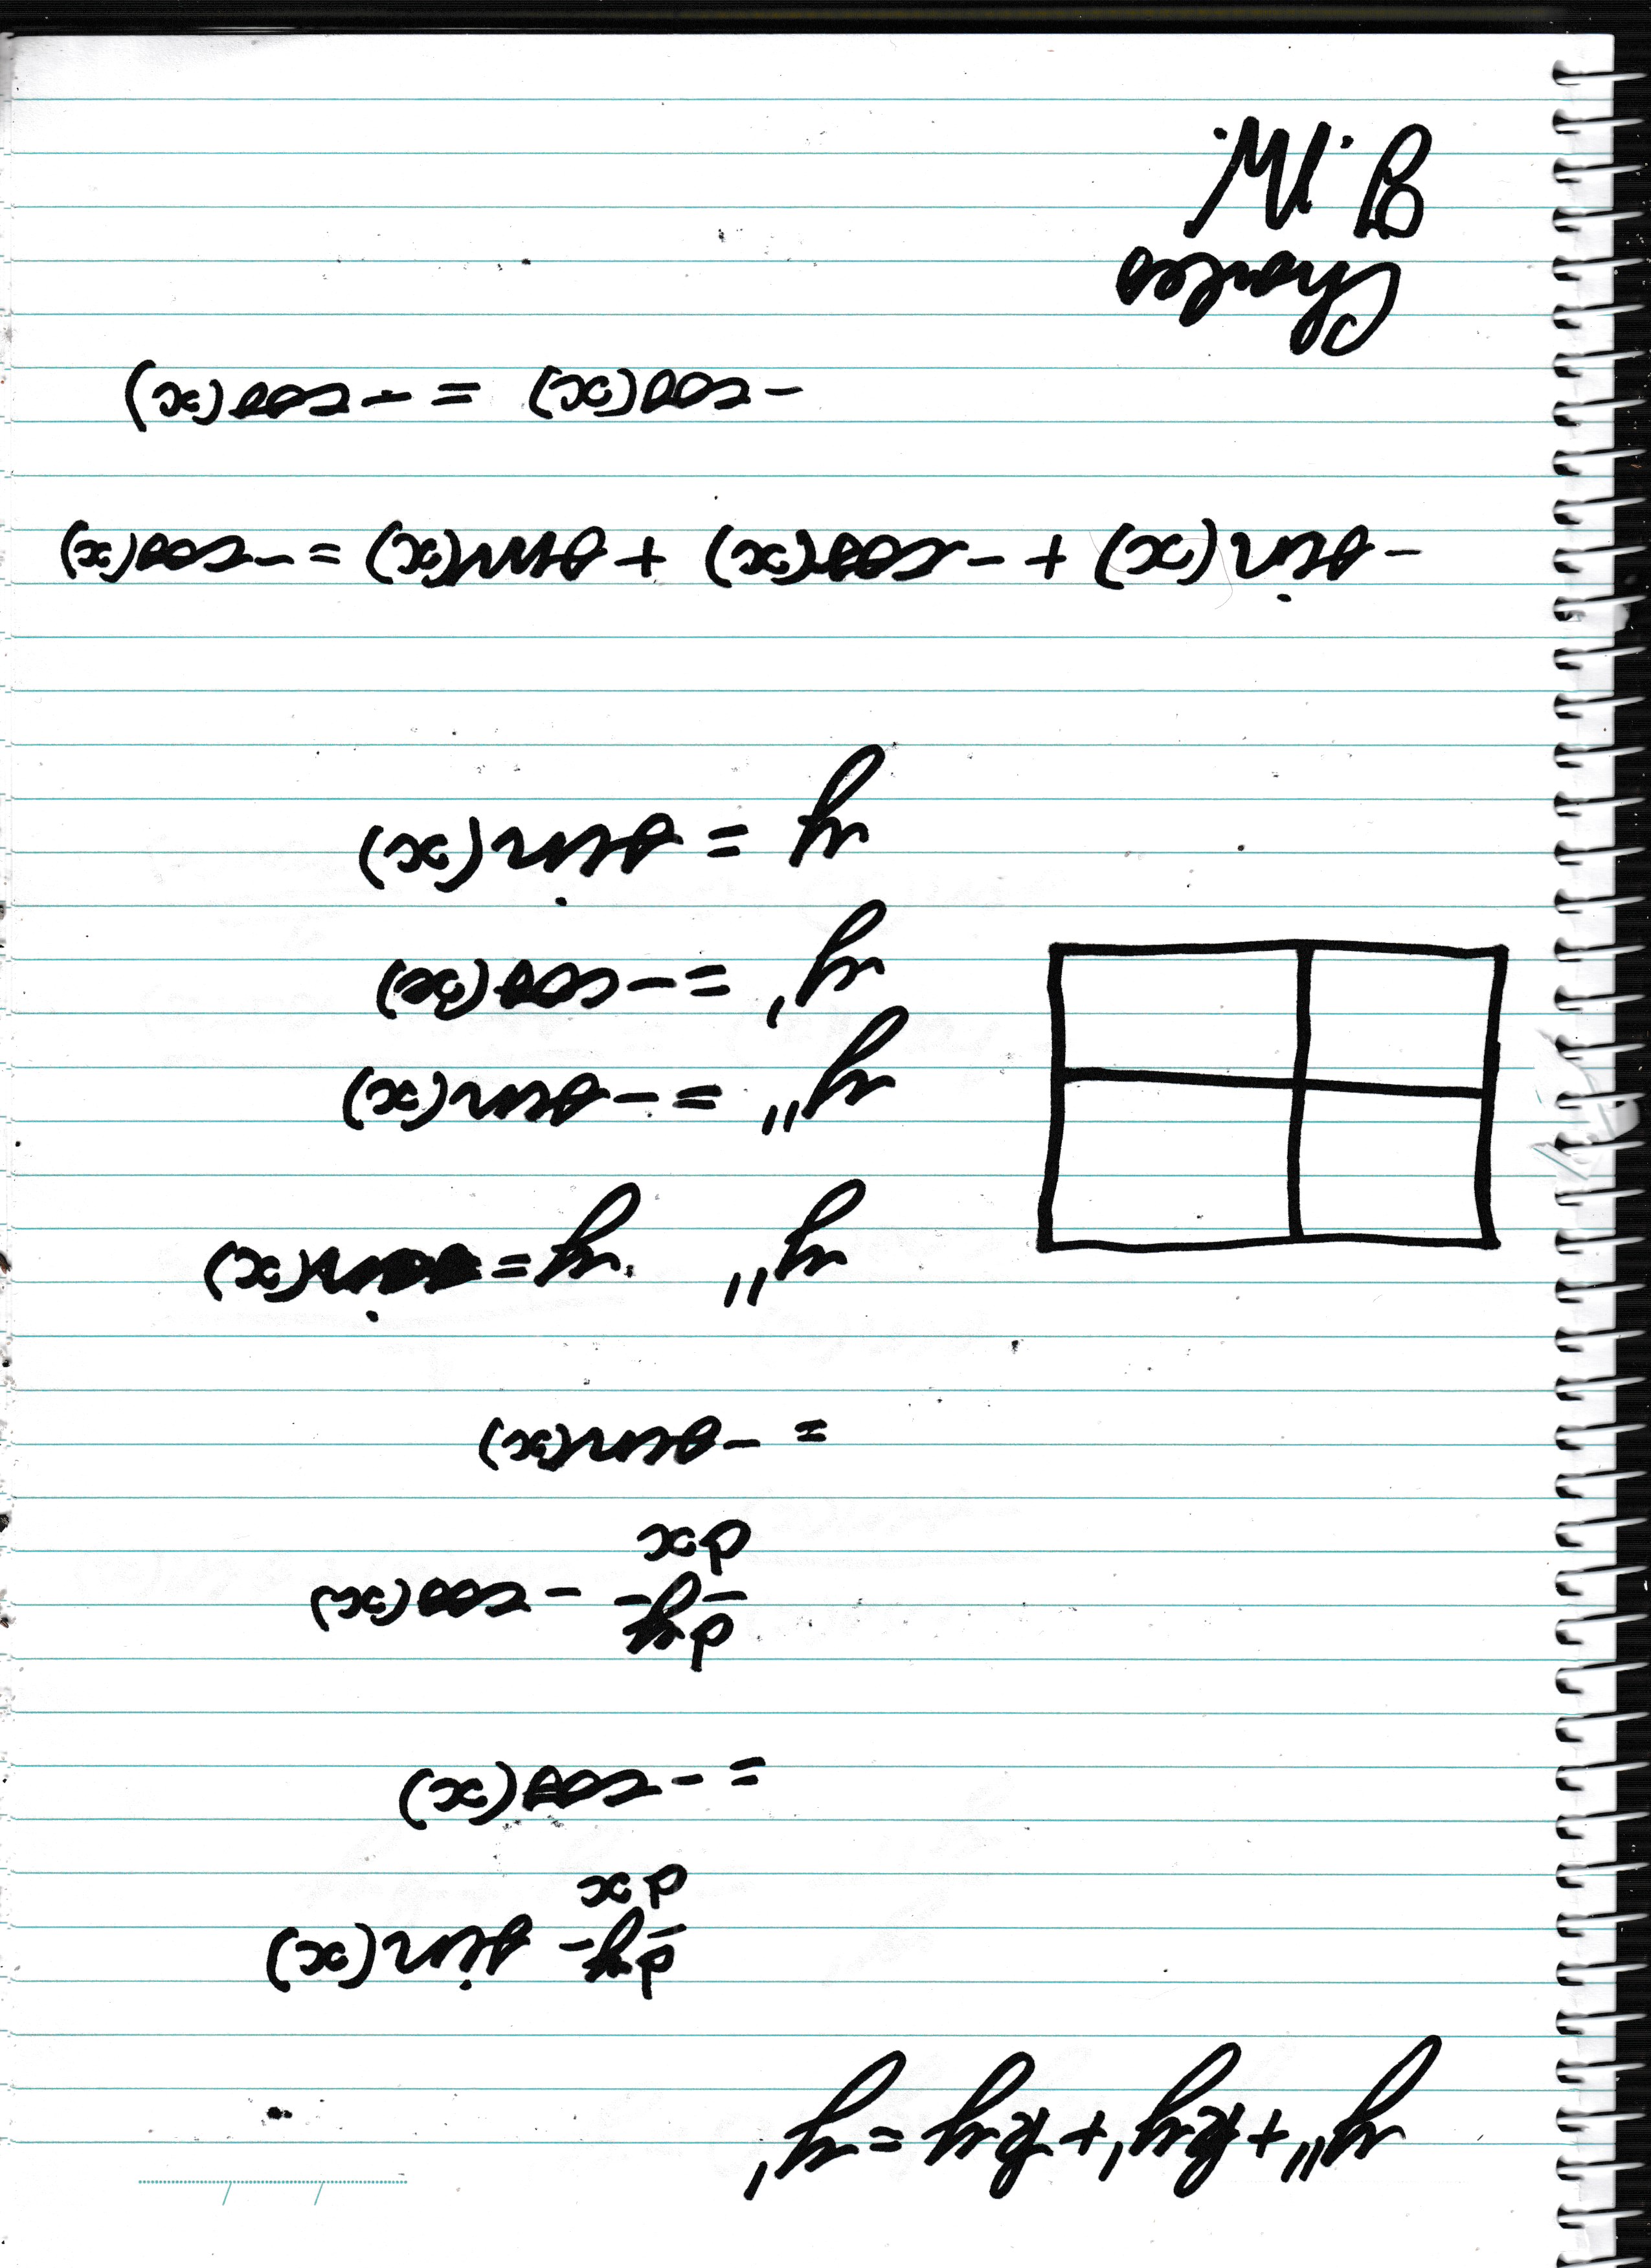 y'' + ky' + ky = y'
dy/dx sin(x)
= -cos(x)
dy/dx -cos(x)
= -sin(x)
y'' y = sin(x)
y'' = -sin(x)
y' = -cos(x)
y = sin(x)
-sin(x) + -cos(x) + sin(x) = -cos(x)
-cos(x) = -cos(x)
Charles